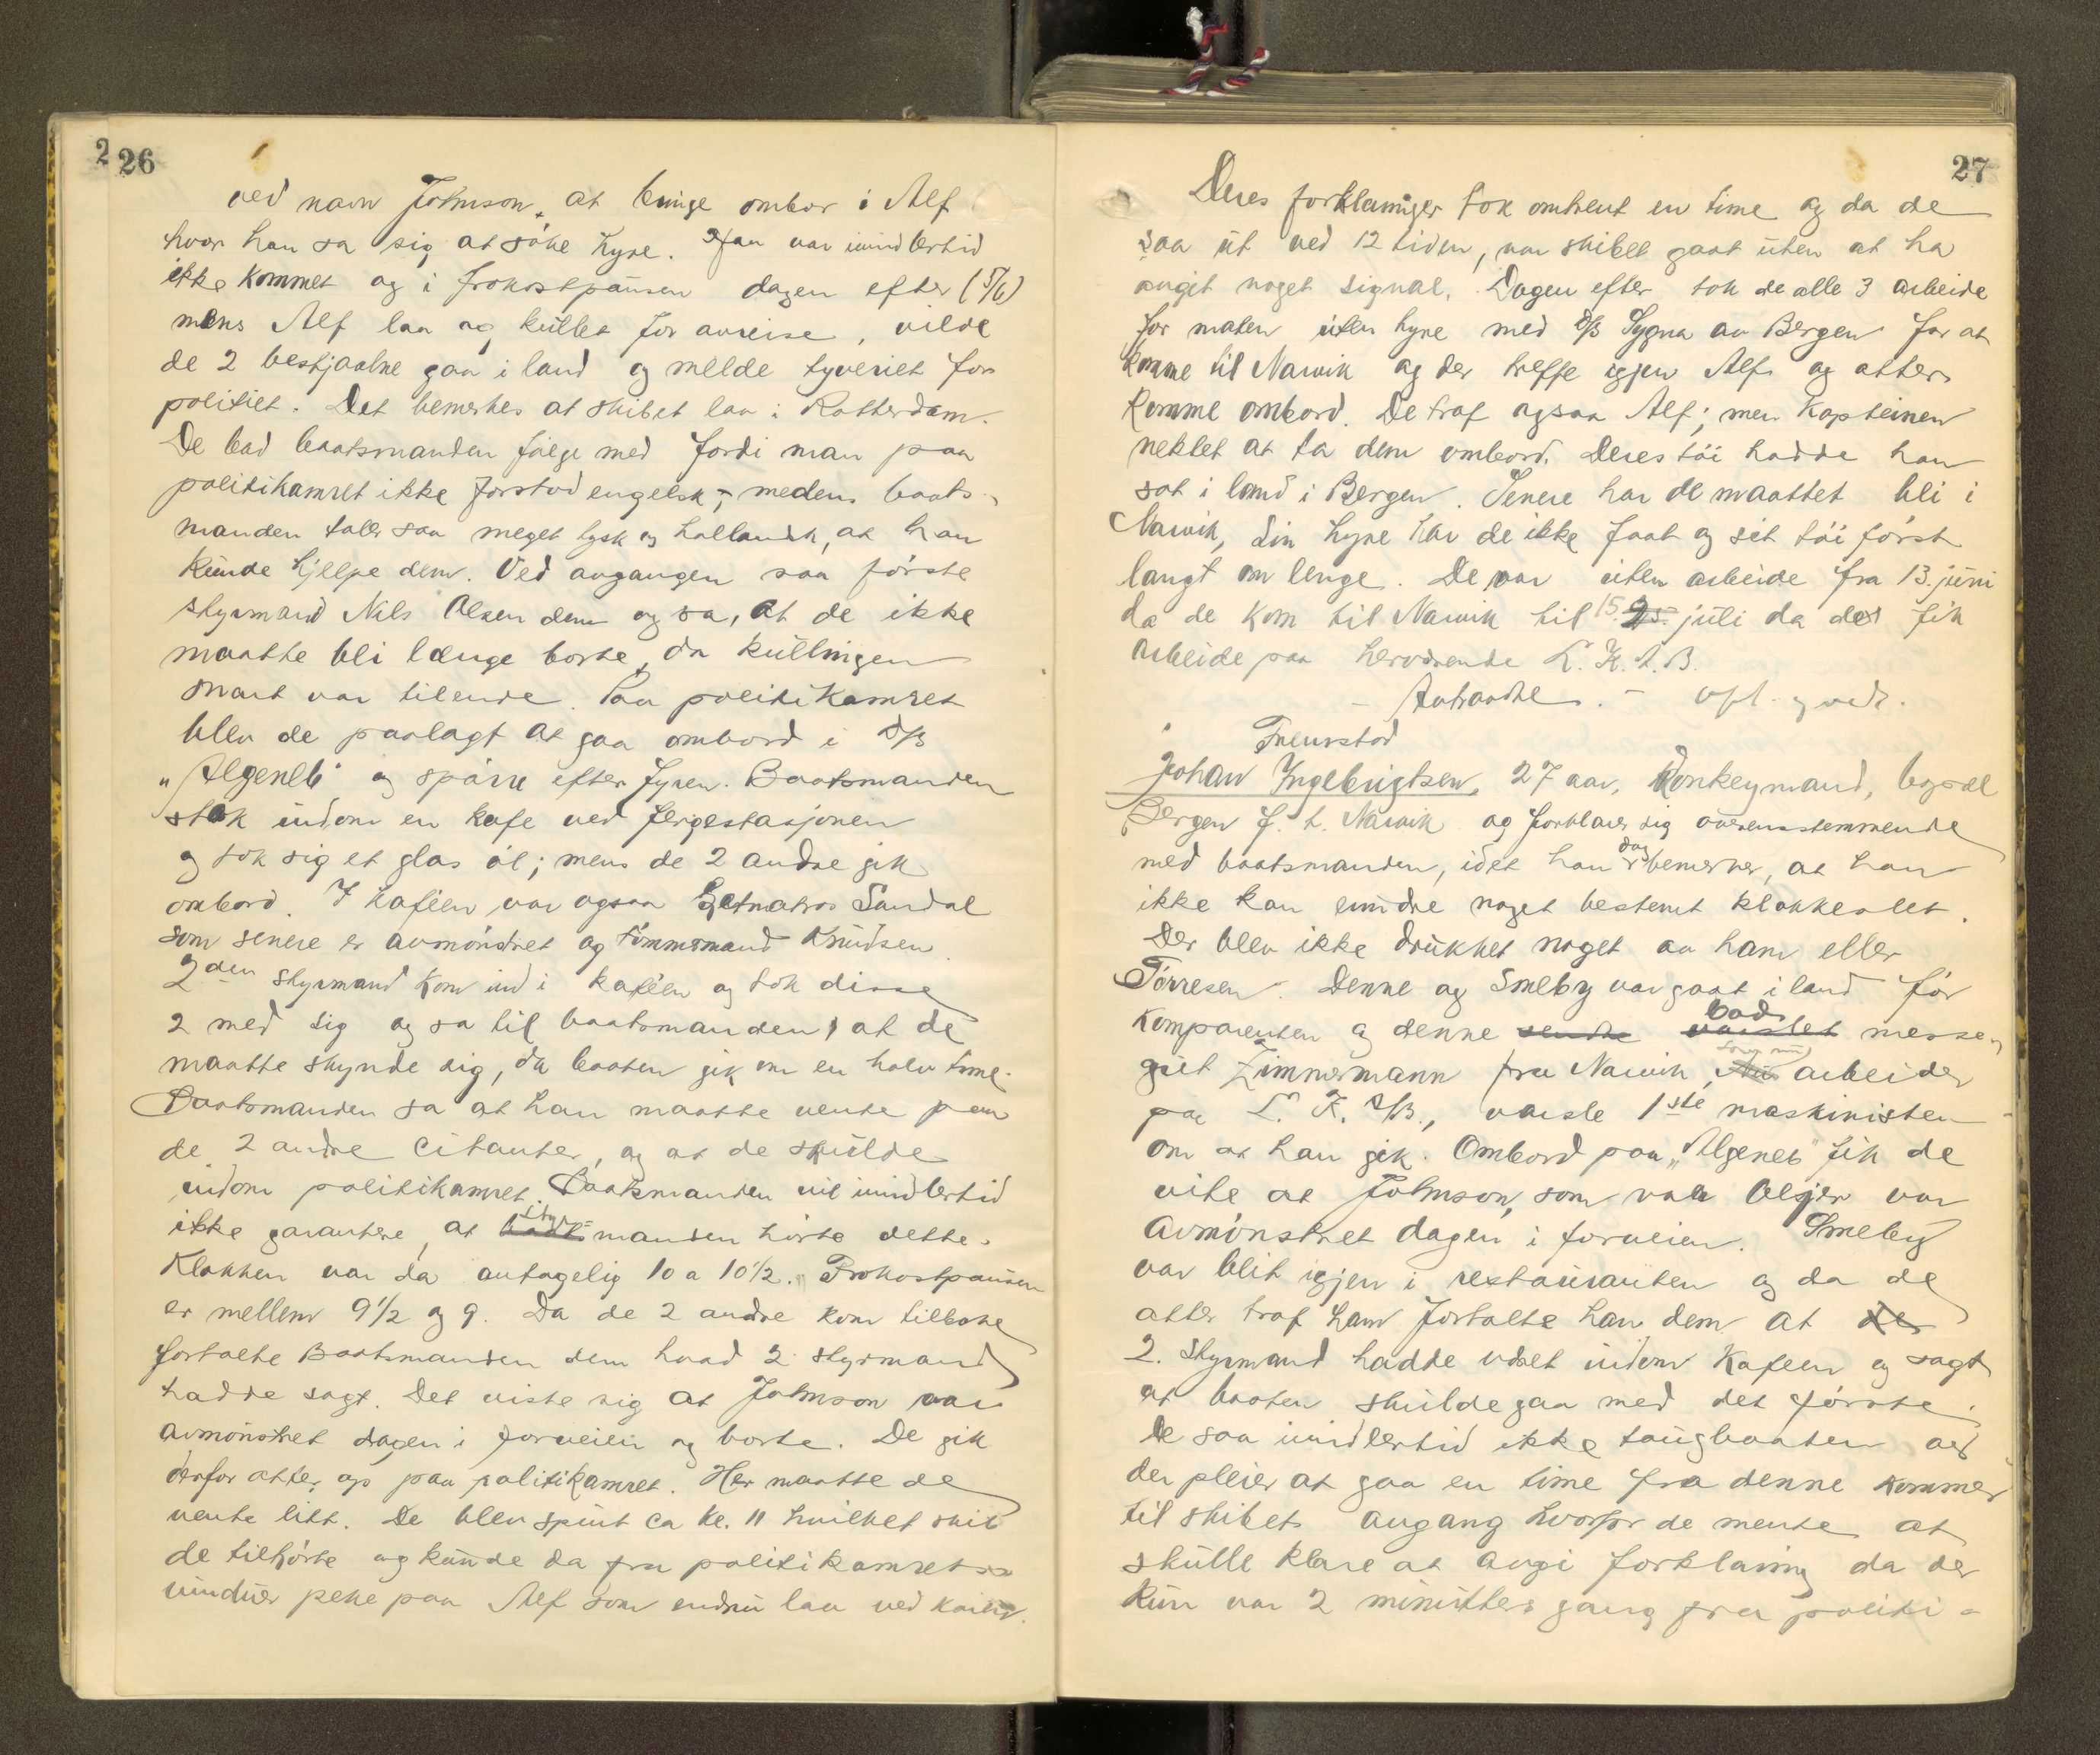 2 26
ved navn Johnson, at bringe ombor i Alf
hvor han sa sig at söke hyre. Han var imidlertid
ikke kommet og i frokostpausen dagen efter (5/6)
mens Alf laa og kullet for avreise, vilde
de 2 bestjaalne gaa i land og melde tyveriet for
politiet. Det bemerkes at skibet laa i Rotterdam.
De bad baatsmanden fölge med fordi man paa
politikamret ikke forstod engelsk, medens baats-
manden taler saa meget tysk og hollandsk, at han
kunde hjelpe dem. Ved avgangen saa förste
styrmand Nils Olsen dem og sa, at de ikke
maatte bli længe borte, da kullingen
snart var tilende. Paa politikamret
blev de paalagt at gaa ombord i D/S
"Algeneb" og spörre efter fyren. Baatsmanden
stak indom en kafe ved fergestasjonen
og tok sig et glas öl; mens de 2 andre gik
ombord. I kaféen var ogsaa Letmatros Sandal
som senere er avmönstret og tömmermand Knudsen.
2den styrmand kom ind i kaféen og tok disse
2 med sig og sa til baatsmanden, at de
maatte skynde sig, da baaten gik om en halv time.
Baatsmanden sa at han maatte vente paa
de 2 andre citanter, og at de skulde
indom politikamret. Baatsmanden vil imidlertid
ikke garantere, at styr-manden hörte dette.
Klokken var da antagelig 10 a 10½. Frokostpausen
er mellem 9½ og 9. Da de 2 andre kom tilbake
fortalte Baatsmanden dem hvad 2. styrmand
hadde sagt. Det viste sig at Johnson var
avmönstret dagen i forveien og borte. De gik
derfor atter op paa politikamret. Her maatte de
vente litt. De blev spurt ca kl. 11 hvilket skib
de tilhörte og kunde da fra politikamrets
vinduer peke paa Alf som endnu laa ved kaien.
27
Deres forklaringer tok omtrent en time og da de
saa ut ved 12 tiden, var skibet gaat uten at ha
avgit noget signal. Dagen efter tok de alle 3 arbeide
for maten uten hyre med D/S Sygna av Bergen for at
komme til Narvik og der treffe igjen Alf og atter
komme ombord. De traf ogsaa Alf; men kapteinen
nektet at ta dem ombord. Deres töi hadde han
sat i land i Bergen. Senere har de maattet bli i
Narvik, sin hyre har de ikke faat og sit töi först
langt om lenge. De var uten arbeide fra 13. juni
da de kom til Narvik til 15. juli da de fik
arbeide paa herværende L. K. A. B.
- Fratraadte. - opl. og vedt.
Fremstod
Johan Ingebrigtsen, 27 aar, Donkeymand, bopæl
Bergen f. t. Narvik og forklarer sig overensstemmende
med baatsmanden, idet han dog bemerker, at han
ikke kan erindre noget bestemt klokkeslet.
Der blev ikke drukket noget av ham eller
Törresen. Denne og Smeby var gaat i land för
komparenten og denne bad messe-
gut Zimmermann fra Narvik, som nu arbeider
paa L. K. A/B., varsle 1ste maskinisten
om at han gik. Ombord paa "Algeneb" fik de
vite at Johnson, som var belgier var
avmönstret dagen i forveien. Smeby
var blit igjen i restauranten og da de
atter traf ham fortalte han dem at
2. styrmand hadde været indom kafeen og sagt
at baaten skulde gaa med det förste.
De saa imidlertid ikke taugbaaten og
der pleier at gaa en time fra denne kommer
til skibets avgang hvorfor de mente at
skulle klare at avgi forklaring da der
kun var 2 minutters gang fra politi-